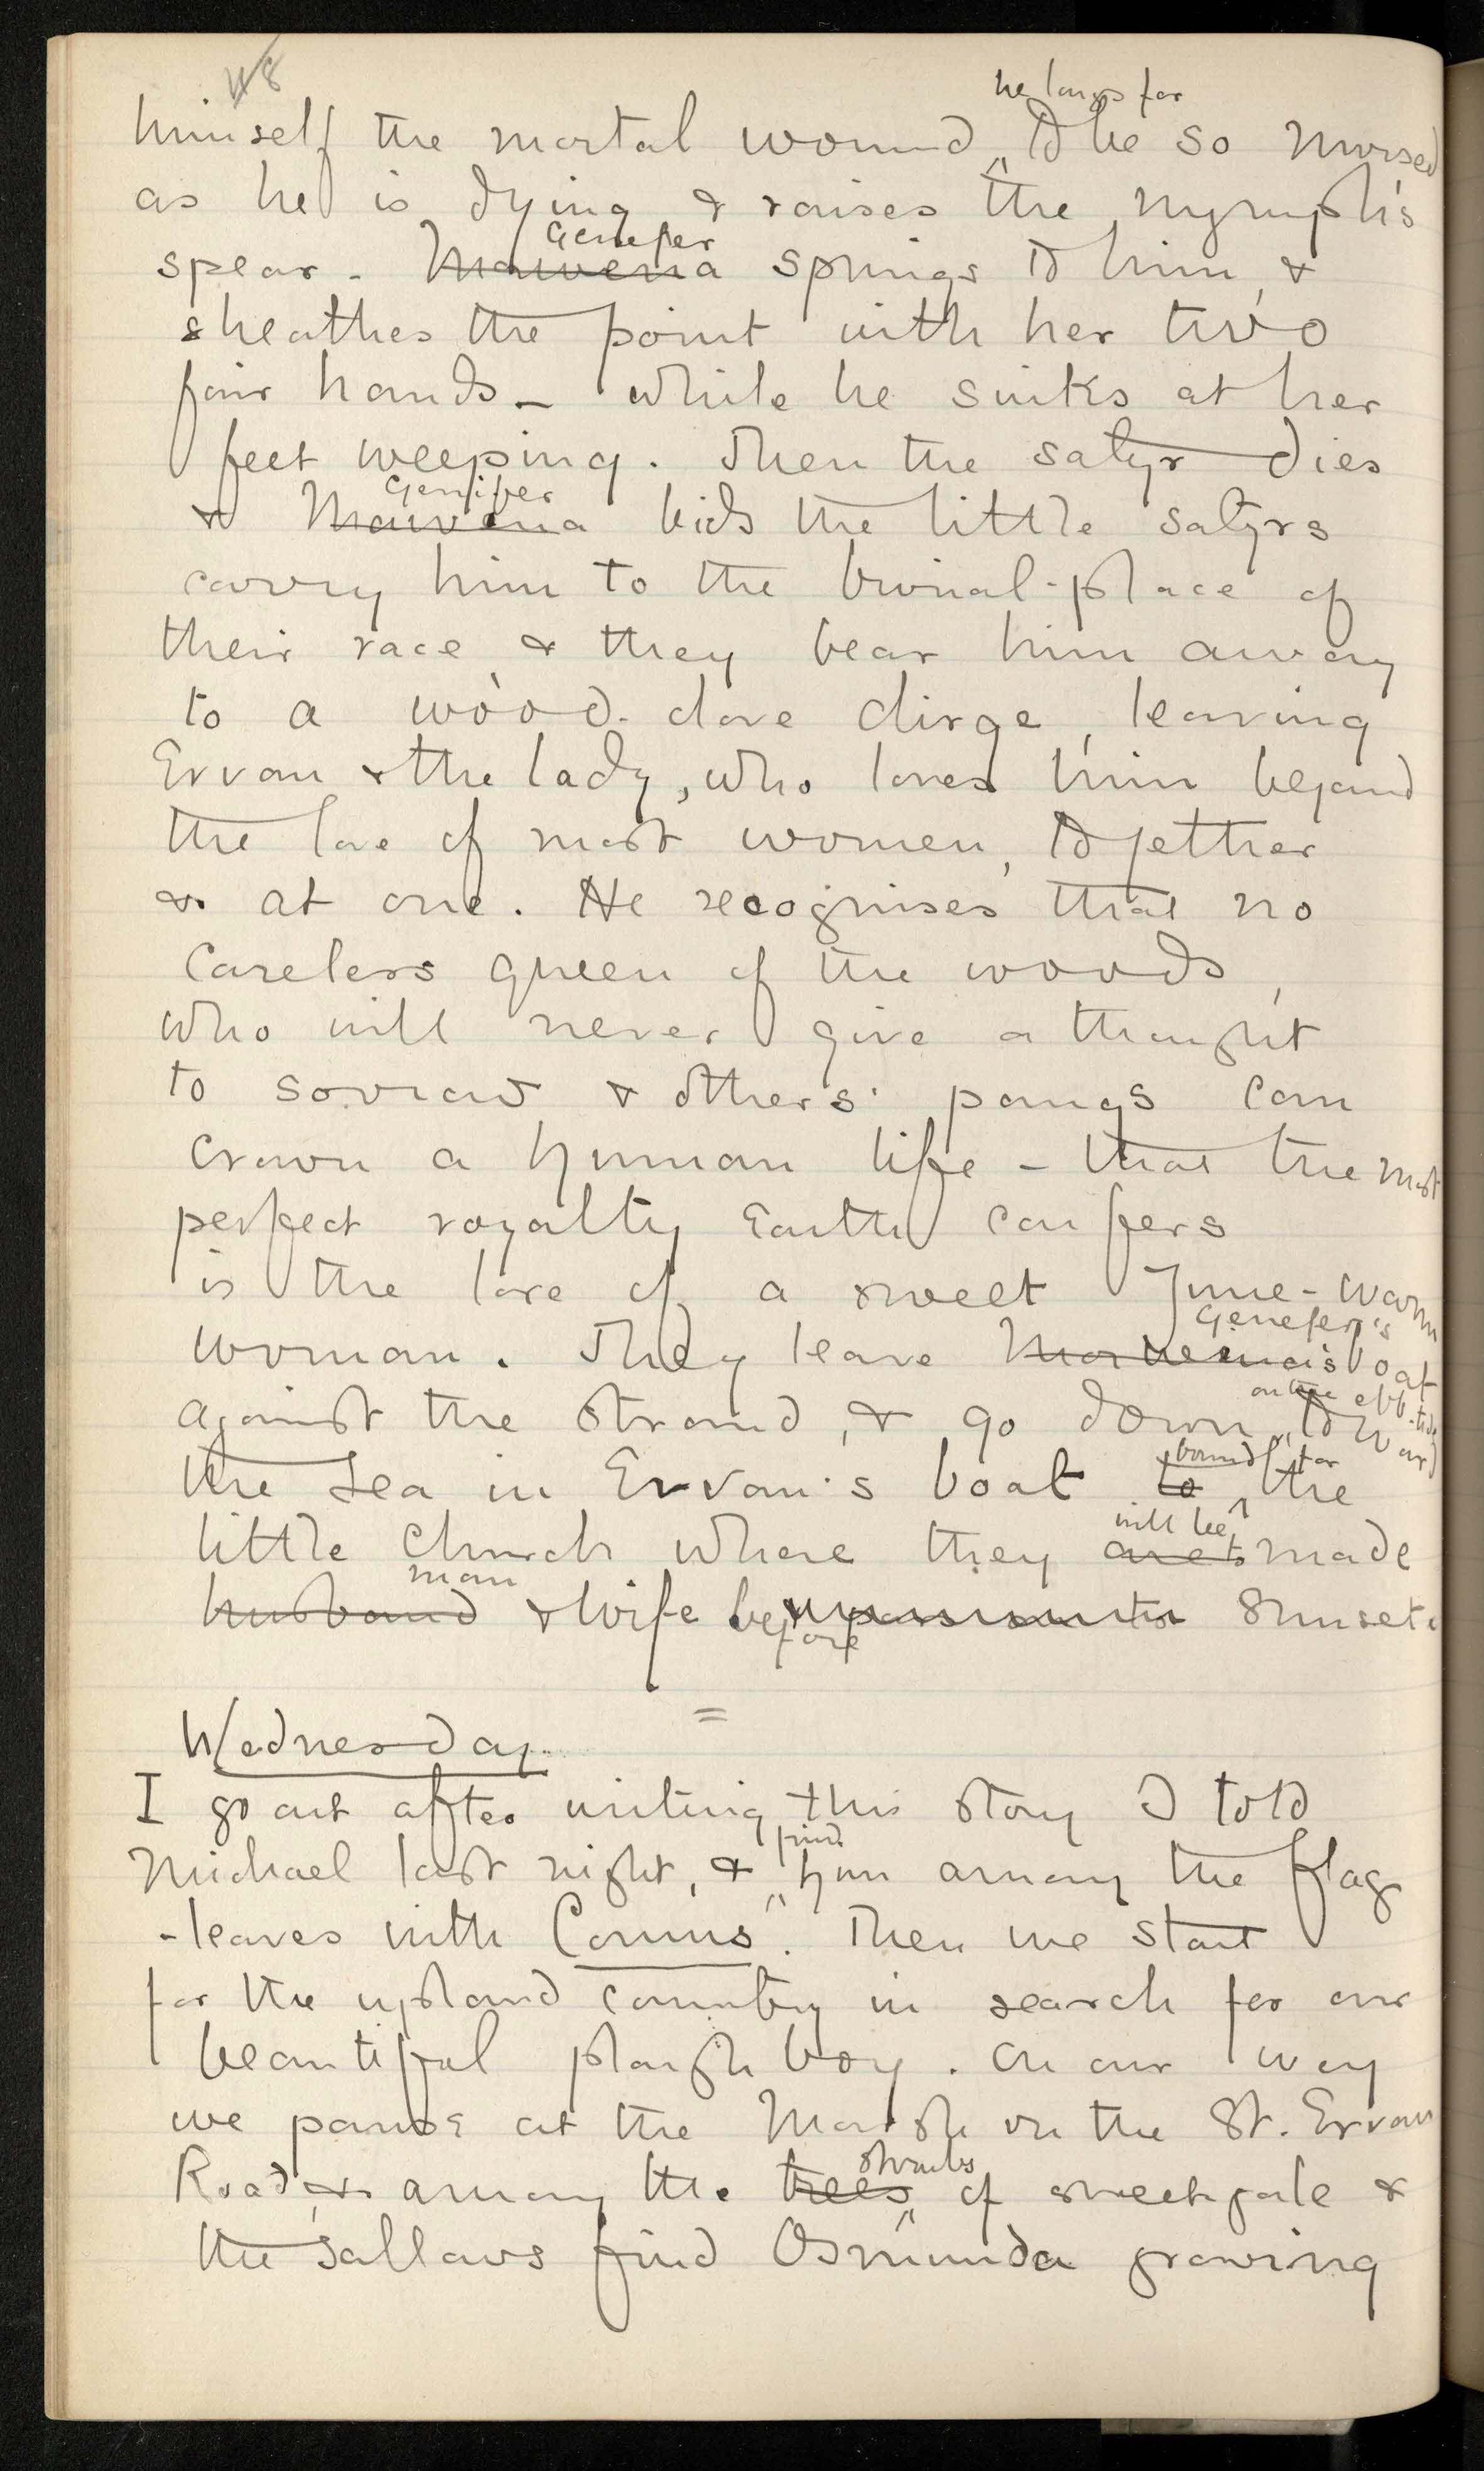 48
he longs for
himself the mortal wound, to be so nursed
as he is dying & raises the nymph's
Genefer
spear - Mawena springs to him, &
sheathes the point with her two
fair hands - while he sinks at her
feet weeping. Then the satyr dies
Genifer
& Mawena bids the little satyrs
carry him to the burial-place of
their race & they bear him away
to a wood-dove dirge, leaving
Ervan & the lady, who loves him beyond
the love of most women, together
& at one. He recognises that no
careless queen of the woods,
who will never give a thought
to sorrow & others' pangs can
crown a human life - that the most
perfect royalty Earth confers
is the love of a sweet June-warm
Genefer's
woman. They leave boat
on the ebb-tide
against the strand, & go down toward
bound for
the sea in Ervan's boat to the
will be
little church where they are made
man
husband & wife before sunset.
=
Wednesday
I go out after writing this story I told
find
Michael last night, & him among the flag
-leaves with Comus. Then we start
for the upland country in search for our
beautiful plough boy. On our way
we pause at the Marsh on the St. Ervan
shrubs
Road & among the trees of sweet gale &
the sallows find Osmunda growing